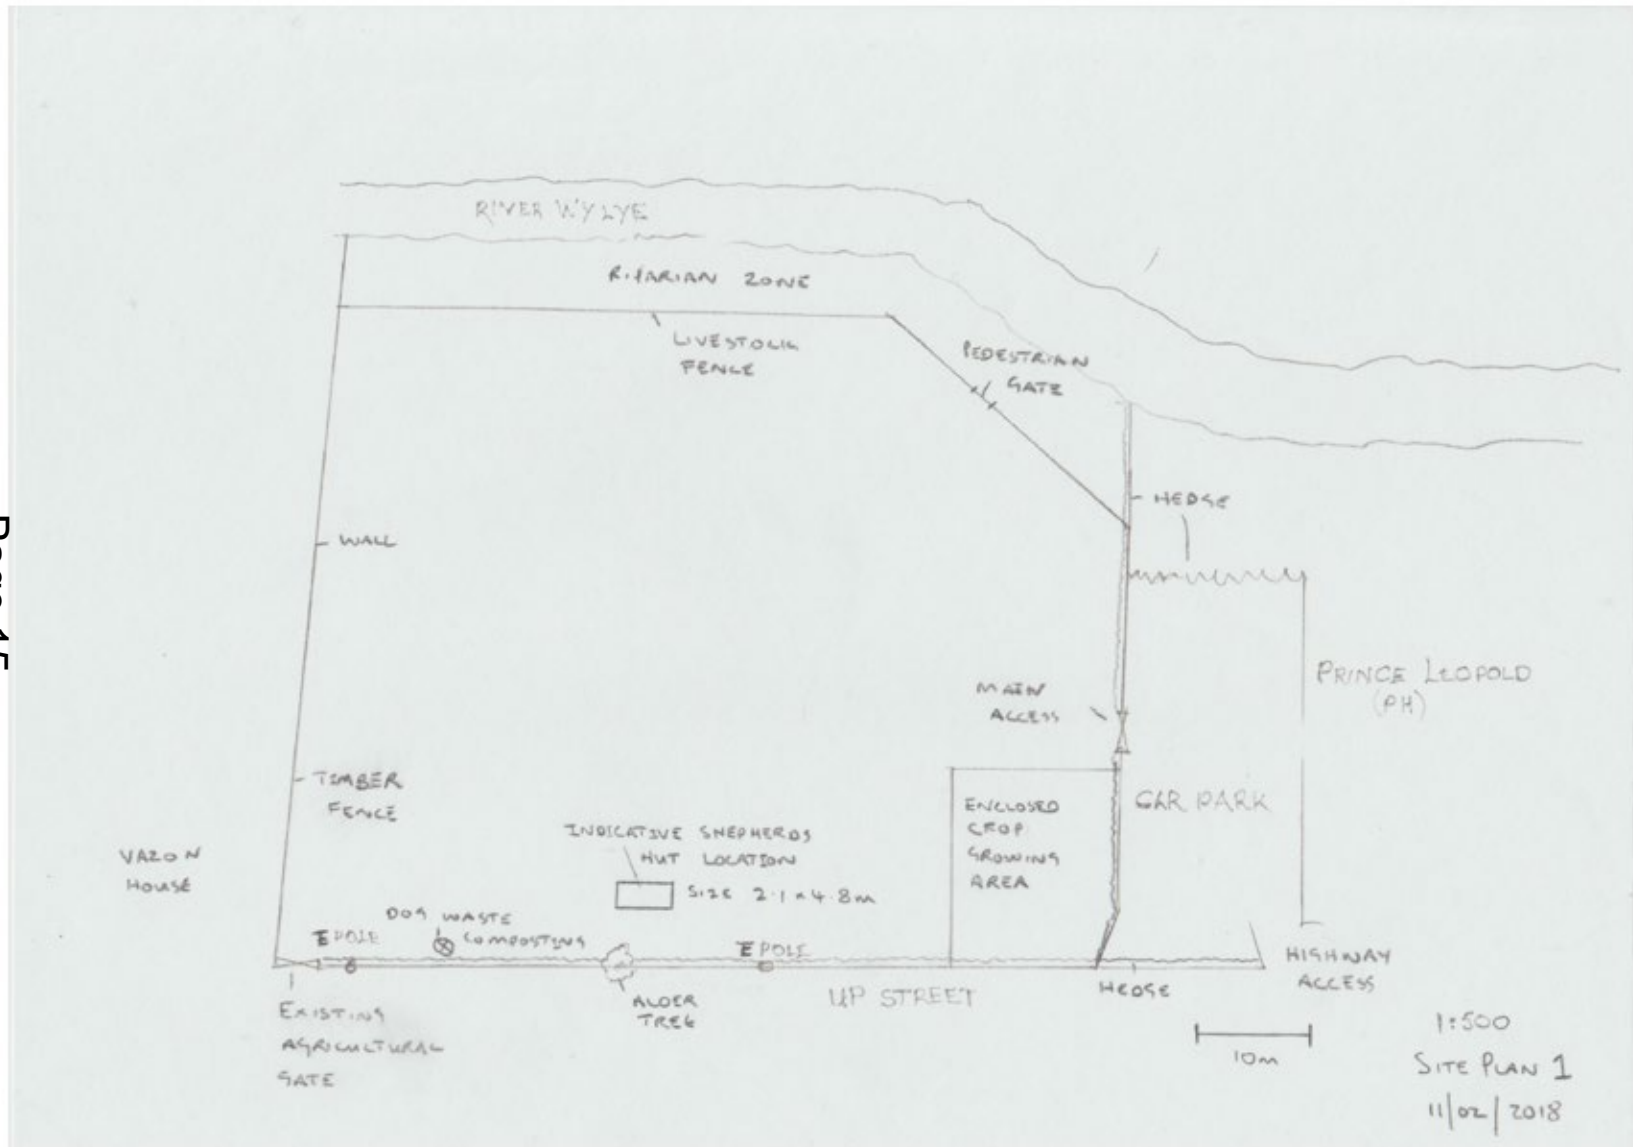 RIVER WYLYE
RIPARIAN ZONE
LIVESTOCK
FENCE
PEDESTRIAN
GATE
HEDGE
WALL
PRINCE LEOPOLD
(PH)
MAIN
ACCESS
TIMBER
FENCE
ENCLOSED
CROP
GROWING
AREA
CAR PARK
INDICATIVE SHEPHERDS
HUT LOCATION
SIZE 2.1 x 4.8m
VAZON
HOUSE
DOG WASTE
COMPOSTING
E POLE
E POLE
HIGHWAY
ACCESS
UP STREET
HEDGE
ALDER
TREE
EXISTING
AGRICULTURAL
GATE
10m
1:500
SITE PLAN 1
11/02/2018